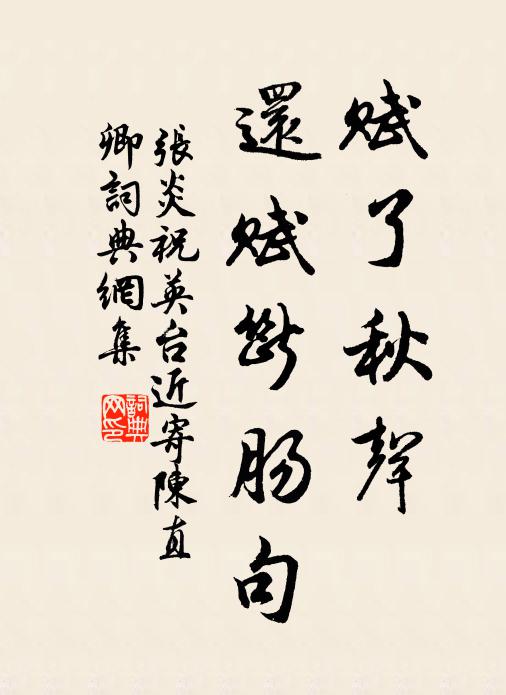 賦了秋聲
還賦斷腸句
張炎祝英台近寄陳直
卿詞典網集
詞典
网印